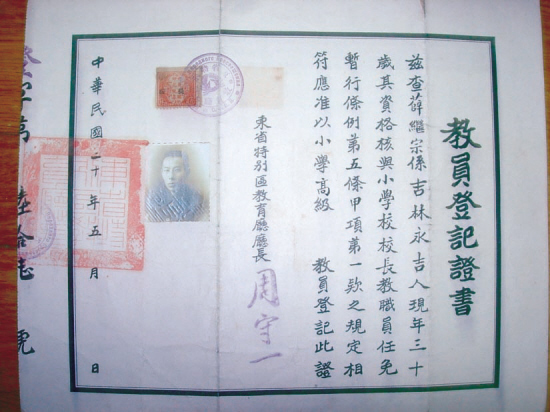 教員登記證書
茲查薛繼宗係吉林永吉人現年三十
歲其資格核與小學校校長教職員任免
暫行條例第五條甲項第一欵之規定相
符應准以小學高級 教員登記此證
東省特別區教育廳廳長 周守一
中華民國二十年五月 日
登字第 號